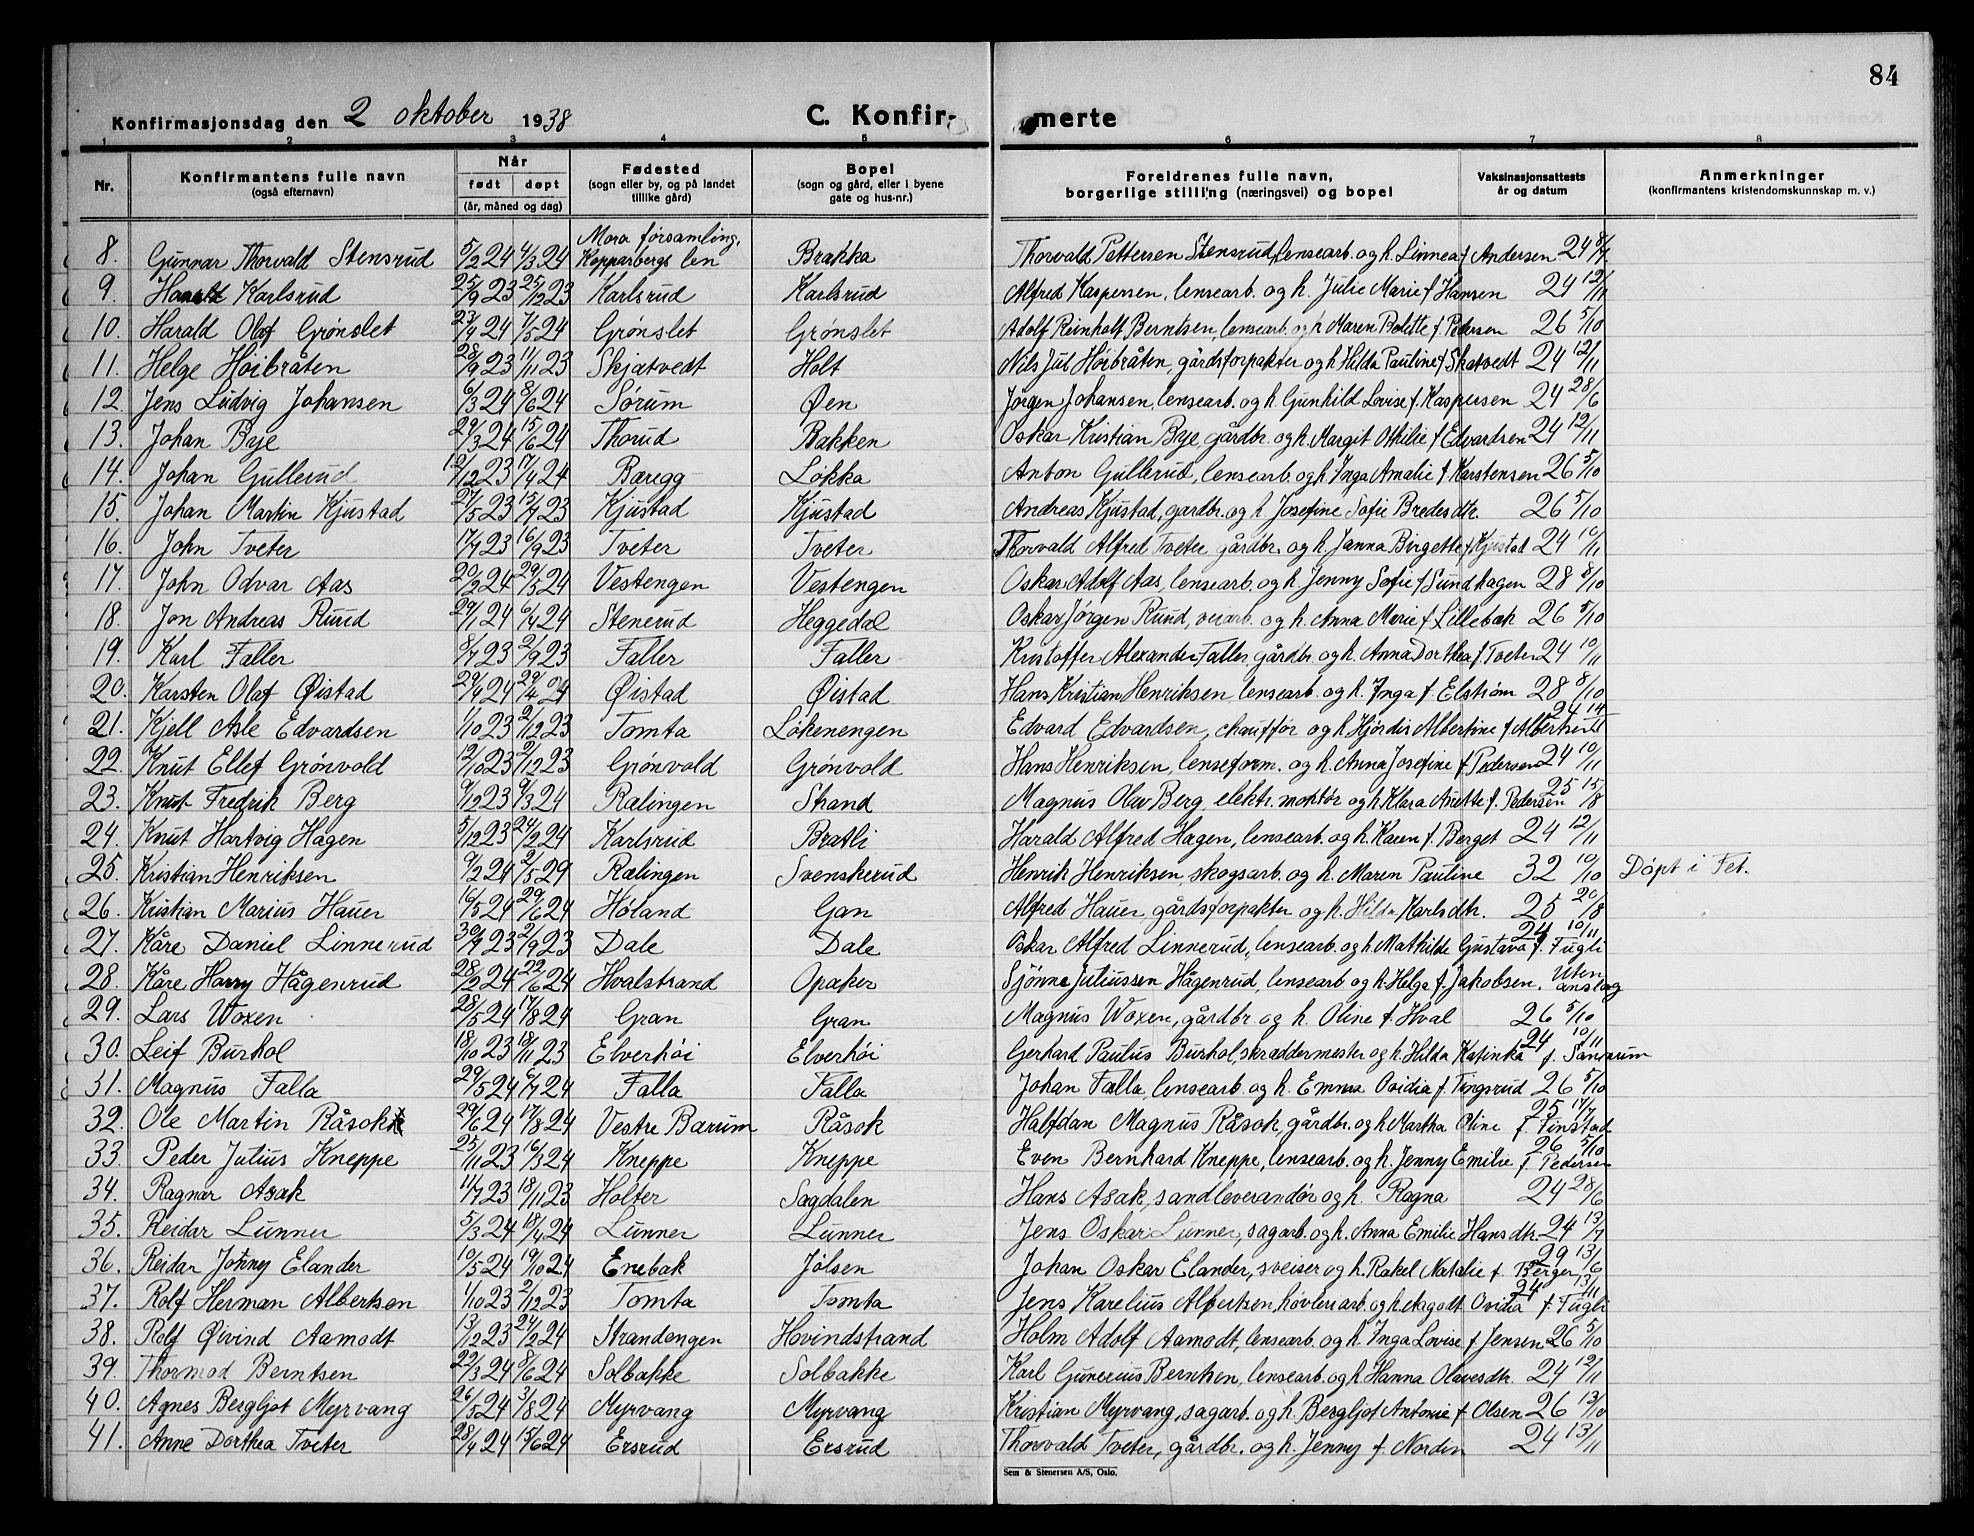 84
Konfirmasjonsdag den 2 oktober 1938 C. Konfir- merte
1 2 3 4 5 6 7 8
Nr. Konfirmantens fulle navn (også efternavn) Når født døpt (år, måned og dag) Fødested (sogn eller by, og på landet tillike gård) Bopel (sogn og gård, eller i byene gate og hus-nr.) Foreldrenes fulle navn, borgerlige stilling (næringsvei) og bopel Vaksinasjonsattests år og datum Anmerkninger (konfirmantens kristendomskunnskap m. v.)
8. Gunnar Thorvald Stensrud 5/2 24 4/3 24 Mora församling, Kopparbergs len Brakka Thorvald Pettersen Stensrud, lensearb. og h. Linnea f Andersen 24 8/7
9. Karlsrud 25/9 23 25/12 23 Karlsrud Karlsrud Alfred Kaspersen, lensearb. og h. Julie Marie f Hansen 24 12/11
10. Harald Olaf Grønslet 23/4 24 7/5 24 Grønslet Grønslet Adolf Reinholf Berntsen, lensearb. og h Maren Bolette f. Pedersen 26 5/10
11. Helge Høibråten 28/9 23 11/11 23 Skjatvedt Holt Nils Jul Høibråten, gårdsforpakter og h Hilda Pauline f Skatvedt 24 12/11
12. Jens Ludvig Johansen 6/3 24 8/6 24 Sørum Øen Jørgen Johansen, lensearb. og h. Gunhild Lovise f. Kaspersen 24 28/6
13. Johan Bye 29/3 24 15/6 24 Thorud Bakken Oskar Kristian Bye gårdbr. og h. Margit Othilie f Edvardsen 24 12/11
14. Johan Gullerud 12/12 23 17/4 24 Bæregg Løkka Anton Gullerud, lensearb. og h. Inga Amalie f Karstensen 26 5/10
15. Johan Martin Kjustad 27/5 23 15/7 23 Kjustad Kjustad Andreas Kjustad, gardbr. og h. Josefine Sofie Bredesdtr. 26 5/10
16. John Tveter 17/7 23 16/9 23 Tveter Tveter Thorvald Alfred Tveter gårdbr. og h. Janna Birgette f Kjustad 24 10/11
17. John Odvar Aas 20/2 24 29/5 24 Vestengen Vestengen Oskar Adolf Aas, lensearb. og h. Jenny Sofie f Sundhagen 28 8/10
18. Jon Andreas Ruud 29/1 24 6/4 24 Stenerud Heggedal Oskar Jørgen Ruud, veiarb. og h. Anna Marie f Lillebæk 26 5/10
19. Karl Faller 8/7 23 2/9 23 Faller Faller Kristoffer Alexander Faller, gårdbr og h. Anna Dorthea f. Tveter 24 10/11
20. Karsten Olaf Øistad 29/4 24 Øistad Øistad Hans Kristian Henriksen, lensearb. og h. Inga f. Elstrøm 28 8/10
21. Kjell Asle Edvardsen 1/10 23 2/12 23 Tomta Løkenengen Edvard Edvardsen, chauffør og h Hjørdis Albertine f Albertsen 24 14/11
22. Knut Ellef Grønvold 12/10 23 2/12 23 Grønvold Grønvold Hans Henriksen, lenseform. og h. Anna Josefine f Pedersen 24 10/11
23. Knut Fredrik Berg 9/12 23 9/3 24 Rælingen Strand Magnus Olav Berg, elektr. montør og h. Klara Anette f. Pedersen 25 15/8
24. Knut Hartvig Hagen 5/12 23 24/2 24 Karlsrud Bratli Harald Alfred Hagen, lensearb. og h. Karen f. Berget 24 12/11
25. Kristian Henriksen 9/2 24 2/5 29 Rælingen Svenskerud Henrik Henriksen, skogsarb. og h. Maren Pauline 32 10/10 Døpt i Fet.
26. Kristian Marius Hauer 16/5 24 29/6 24 Høland Gan Alfred Hauer, gårdsforpakter og h. Hilda Karlsdtr. 25 20/8
27. Kåre Daniel Linnerud 30/7 23 2/9 23 Dale Dale Oskar Alfred Linnerud, lensearb. og h Mathilde Gustava f. Fugli 24 10/11
28. Kåre Harry Hågenrud 28/2 24 22/6 24 Hvalstrand Opaker Sjønne Juliussen Hågenrud, lensearb og h. Helga f. Jakobsen. Uten anslag
29. Lars Woxen 28/5 24 17/8 24 Gran Gran Magnus Woxen, gårdbr og h. Oline f. Hval 26 5/10
30. Leif Burhol 18/10 23 18/11 23 Elverhøi Elverhøi Gerhard Paulus Burhol, skræddermester og h. Hilda Katinka f. Sannarum 24 10/11
31. Magnus Falla 29/5 24 6/7 24 Falla Falla Johan Falla, lensearb. og h. Emma Ovidia f. Tingsrud 26 5/10
32. Ole Martin Råsok 29/6 24 17/8 24 Vestre Bærum Råsok Halfdan Magnus Råsok, gårdbr. og h Martha Oline f. Finstad 25 17/7
33. Peder Julius Kneppe 25/11 23 16/3 24 Kneppe Kneppe Even Bernhard Kneppe, lensearb. og h. Jenny Emilie f. Pedersen 26 5/10
34. Ragnar Asak 11/7 23 18/11 23 Holter Sagdalen Hans Asak, sandleverandør og h. Ragna 24 28/6
35. Reidar Lunner 5/3 24 18/4 24 Lunner Lunner Jens Oskar Lunner, sagarb. og h. Anna Emilie Hansdtr. 24 13/7
36. Reidar Johnny Elander 10/5 24 19/10 24 Enebak Jølsen Johan Oskar Elander, sveiser og h. Rakel Natalie f. Berger 29 13/6
37. Rolf Herman Albertsen 1/10 23 2/12 23 Tomta Tomta Jens Karelius Albertsen, høvleriarb. og h. Aagodt Ovidia f. Fugli 24 13/11
38. Rolf Øivind Aamodt 13/12 23 24/2 24 Strandengen Hovindstrand Holm Adolf Aamodt, lensearb. og h. Inga Lovise f Jensen 26 5/10
39. Thormod Berntsen 22/3 24 8/6 24 Solbakke Solbakke Karl Gunerius Berntsen, lensearb. og h Hanna Olavesdtr. 24 12/11
40. Agnes Bergljot Myrvang 26/5 24 3/8 24 Myrvang Myrvang Kristian Myrvang, sagarb. og h. Bergljot Antonie f Olsen 26 13/10
41. Anne Dorthea Tveter 28/4 24 15/6 24 Ersrud Ersrud Thorvald Tveter, gårdbr. og h. Jenny f. Nordin 24 13/11
Sem & Stenersen A/S, Oslo.